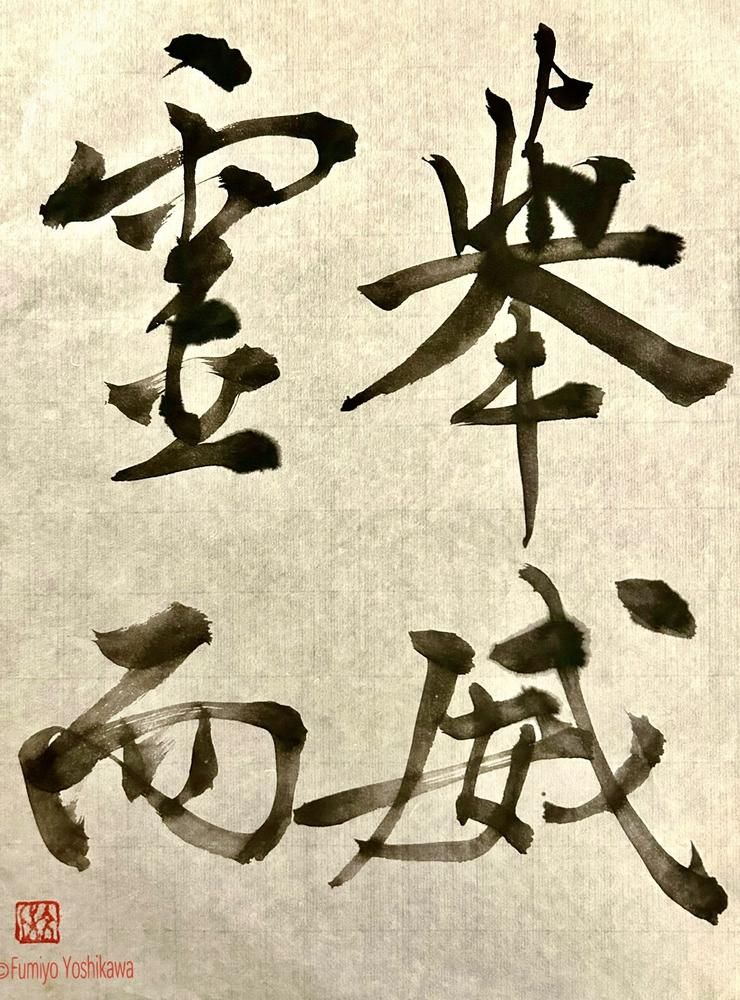 舉威
靈而
©Fumiyo Yoshikawa